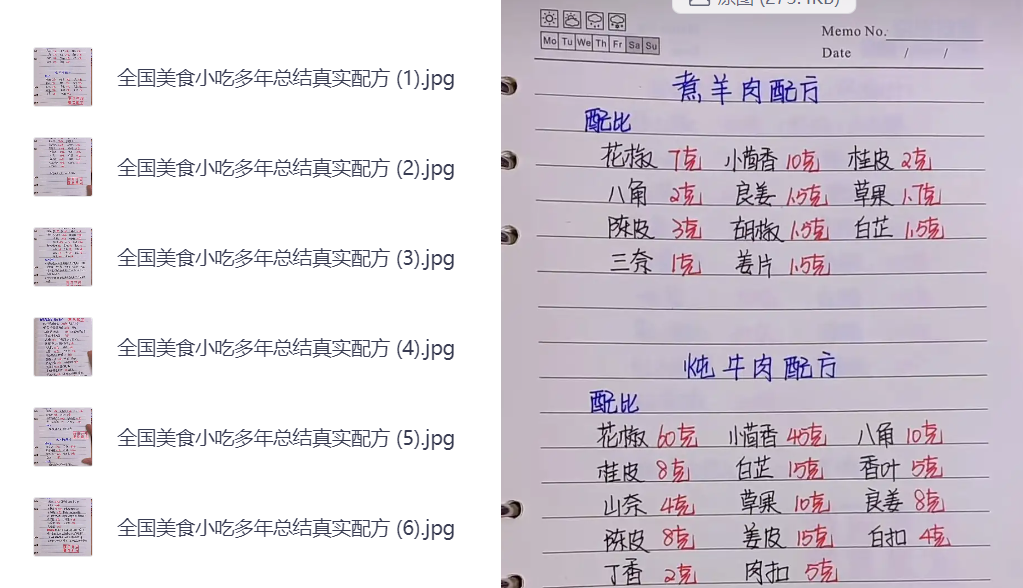 全国美食小吃多年总结真实配方 (1).jpg
全国美食小吃多年总结真实配方 (2).jpg
全国美食小吃多年总结真实配方 (3).jpg
全国美食小吃多年总结真实配方 (4).jpg
全国美食小吃多年总结真实配方 (5).jpg
全国美食小吃多年总结真实配方 (6).jpg
Mo Tu We Th Fr Sa Su
Memo No.
Date / /
煮羊肉配方
配比
花椒 7克 小茴香 10克 桂皮 2克
八角 2克 良姜 1.5克 草果 1.7克
陈皮 3克 胡椒 1.5克 白芷 1.5克
三奈 1克 姜片 1.5克
炖牛肉配方
配比
花椒 60克 小茴香 45克 八角 10克
桂皮 8克 白芷 15克 香叶 5克
山奈 4克 草果 10克 良姜 8克
陈皮 8克 姜皮 15克 白扣 4克
丁香 2克 肉扣 5克